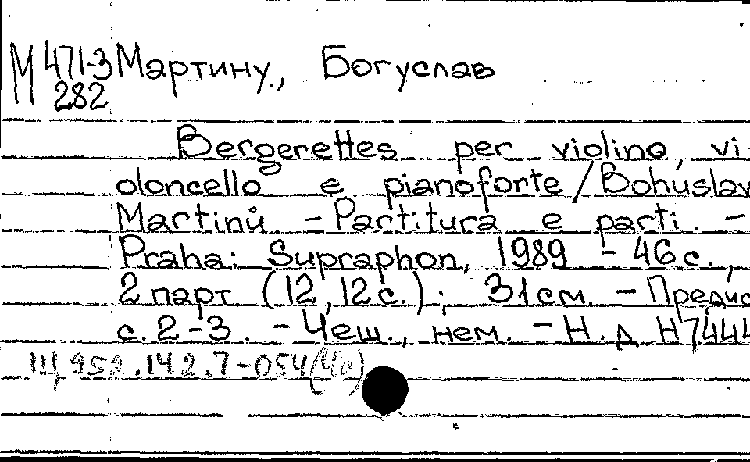 М 471-3 Мартину, Богуслав
282
Bergerettes per violino, vi
oloncello e pianoforte / Bohuslav
Martinů - Partitura e parti. -
Praha: Supraphon, 1989 - 46 с.,
2 парт (12, 12 с.); 31 см. - Предис
с. 2-3. - Чеш., нем. - Н. д. H7444
Щ 952.142.7-054(4е)